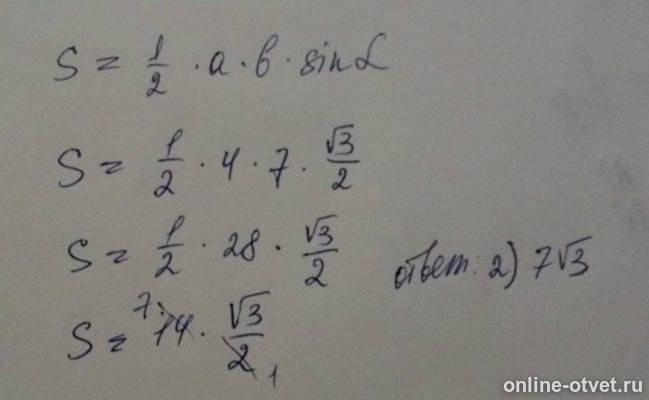 S = 1/2 · a · b · sin α
S = 1/2 · 4 · 7 · √3/2
S = 1/2 · 28 · √3/2
ответ: 2) 7√3
S = 7 14 · √3/2 1
online-otvet.ru